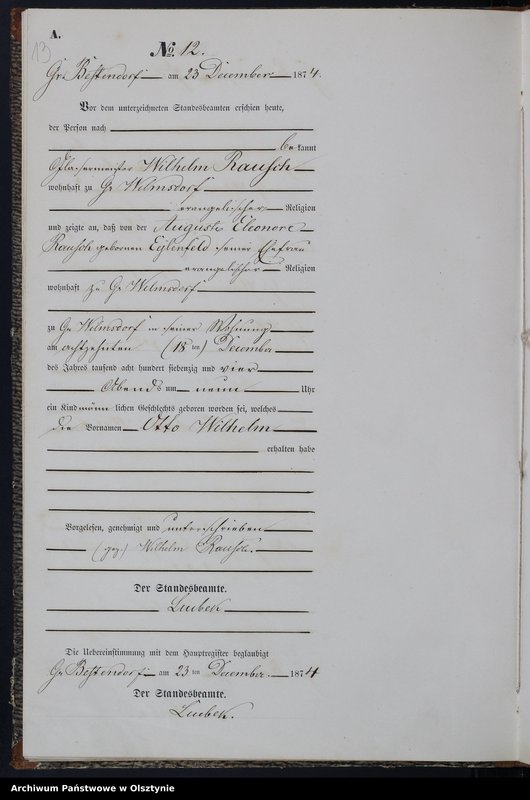 A.
13
No 12.
Gr. Bestendorf am 23 December 1874.
Vor dem unterzeichneten Standesbeamten erschien heute,
der Person nach
be kannt
Wilhelm Rausch
wohnhaft zu Gr Wilmsdorf
evangelischer Religion
und zeigte an, daß von der Auguste Eleonore
Rausch geborenen seiner Ehefrau
evangelischer Religion
wohnhaft zu Gr Wilmsdorf
zu Gr Wilmsdorf in seiner Wohnung
am achtzehnten (18 ten) December
des Jahres tausend acht hundert siebenzig und vier
Abends um neun Uhr
ein Kind männ lichen Geschlechts geboren worden sei, welches
die Vornamen Otto Wilhelm
erhalten habe
Vorgelesen, genehmigt und unterschrieben
(gez.) Wilhelm Rausch.
Der Standesbeamte.
Lubek
Die Uebereinstimmung mit dem Hauptregister beglaubigt
Gr Bestendorf am 23 ten December. 1874
Der Standesbeamte.
Lubek.
Archiwum Państwowe w Olsztynie